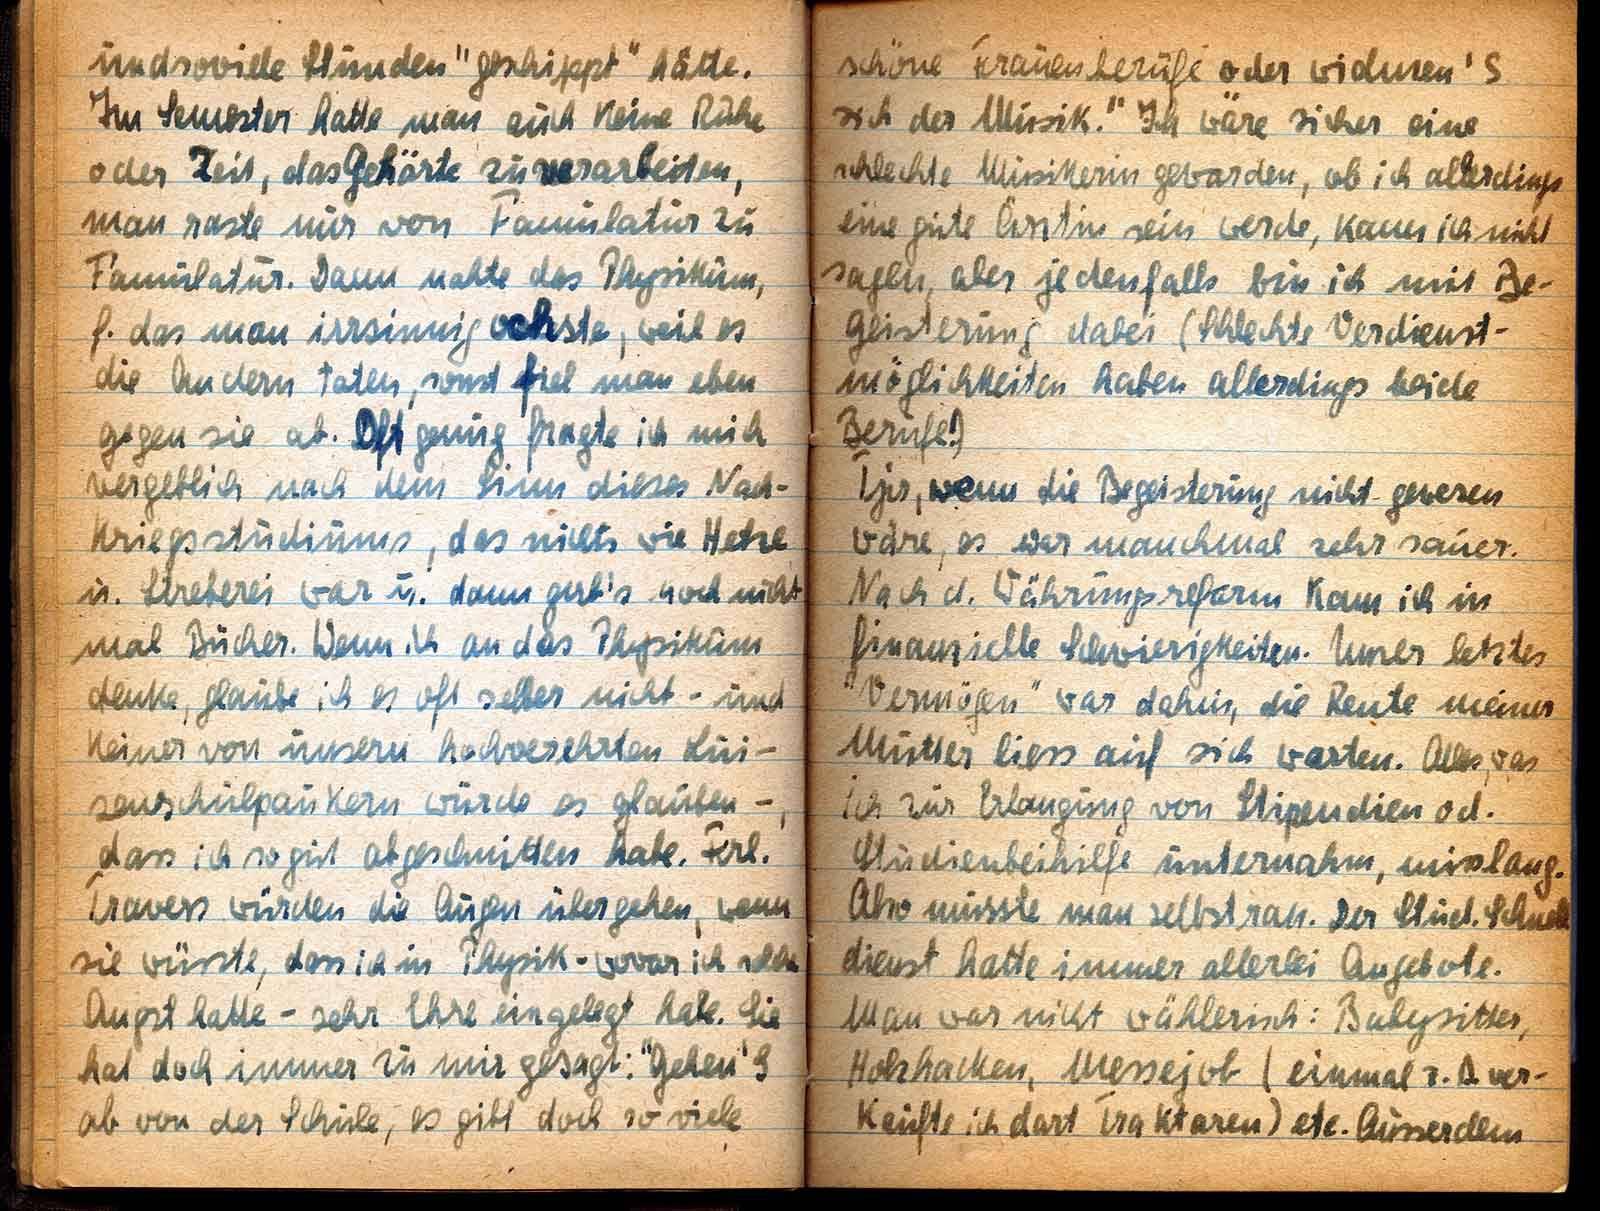 undsoviele Stunden "geschippt" hätte.
Im Semester hatte man auch keine Ruhe
oder Zeit, das Gehörte zu verarbeiten,
man raste nur von Famulatur zu
Famulatur. Dann nahte das Physikum,
f. das man irrsinnig ochste, weil es
die Andern taten, sonst fiel man eben
gegen sie ab. Oft genug fragte ich mich
vergeblich nach dem Sinn dieses Nach-
kriegsstudiums, das nichts wie Hetze
u. Streberei war u. dann gab's noch nicht
mal Bücher. Wenn ich an das Physikum
denke, glaube ich es oft selber nicht - und
keiner von unsern hochverehrten Lui-
senschulpaukern würde es glauben -,
dass ich so gut abgeschnitten habe. Frl.
Travers würden die Augen übergehen, wenn
sie wüsste, dass ich in Physik - wovor ich solche
Angst hatte - sehr Ehre eingelegt habe. Sie
hat doch immer zu mir gesagt: "Gehen'S
ab von der Schule, es gibt doch so viele
schöne Frauenberufe oder widmen'S
sich der Musik." Ich wäre sicher eine
schlechte Musikerin geworden, ob ich allerdings
eine gute Ärztin sein werde, kann ich nicht
sagen, aber jedenfalls bin ich mit Be-
geisterung dabei (Schlechte Verdienst-
möglichkeiten haben allerdings beide
Berufe!)
Tja, wenn die Begeisterung nicht gewesen
wäre, es war manchmal sehr sauer.
Nach d. Währungsreform kam ich in
finanzielle Schwierigkeiten. Unser letztes
"Vermögen" war dahin, die Rente meiner
Mutter liess auf sich warten. Alles, was
ich zur Erlangung von Stipendien od.
Studienbeihilfe unternahm, misslang.
Also musste man selbst ran. Der Stud. Schnell
dienst hatte immer allerlei Angebote.
Man war nicht wählerisch: Babysitter,
Holzhacken, Messejob (einmal z. B ver-
kaufte ich dort Traktoren) etc. Ausserdem